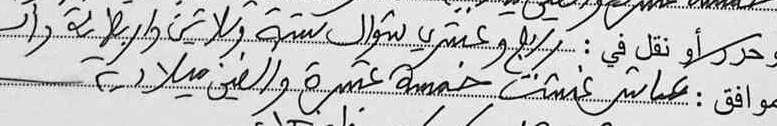 وحرر أو نقل في : رابع وعشري شوال ستة وثلاثين واربعائة وألف
موافق : عاشر غشت خمسة عشرة والفين ميلادية